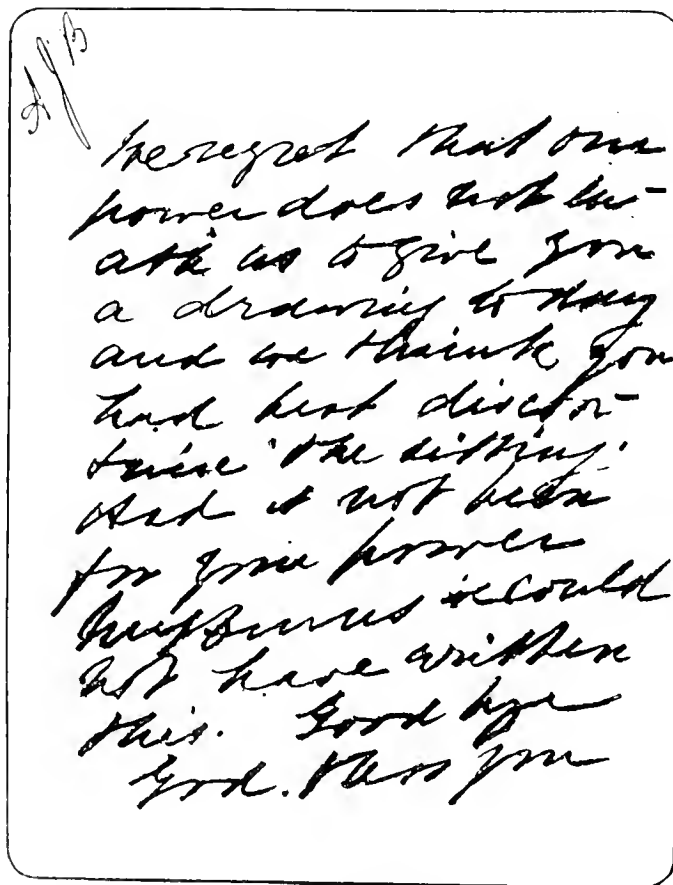 AJB
We regret that our
power does not en-
able us to give you
a drawing today
and we thinnk you
had best discon-
tinue the sitting.
Had it not been
for your power
we could
not have written
this. Good bye
God. bless you